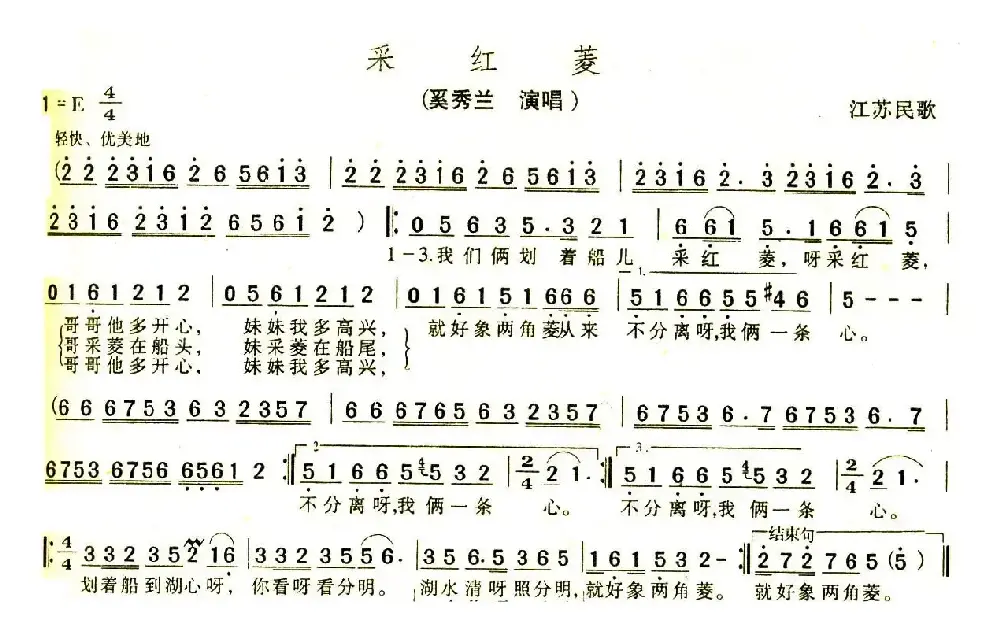 采 红 菱
(奚秀兰 演唱)
1=E 4/4
江苏民歌
轻快、优美地
(2 2 2316 2 6 5613 | 2 2 2316 2 6 5613 | 2316 2. 3 2316 2. 3 |
2316 2312 6561 2 ) |: 0 5 6 3 5. 3 2 1 | 6 6 1 5. 1 6 6 1 5
1-3.我们俩划 着船儿 采红 菱, 呀采红 菱,
0 1 6 1 2 1 2 | 0 5 6 1 2 1 2 | 0 1 6 1 5 1 6 6 6 | 1. 5 1 6 6 5 5 #4 6 | 5 - - -
哥哥他多开心, 妹妹我多高兴, 就好象两角菱从来 不分离呀,我俩一条 心。
哥采菱在船头, 妹采菱在船尾,
哥哥他多开心, 妹妹我多高兴,
(6 6 6753 6 3 2357 | 6 6 6765 6 3 2357 | 6753 6. 7 6753 6. 7 |
6753 6756 6561 2 :| 2. 5 1 6 6 5 4 5 3 2 | 2/4 2 1. :| 3. 5 1 6 6 5 4 5 3 2 | 2/4 2 1. |
不分离呀,我 俩一条 心。 不分离呀,我 俩一条 心。
|: 4/4 3 3 2 3 5 2 1 6 | 3 3 2 3 5 5 5 6. | 3 5 6. 5 3 6 5 | 1 6 1 5 3 2 - :| 结束句 2 7 2 7 6 5 (5) |
划着船到湖心呀, 你看呀看分明。 湖水清呀照分明, 就好象两角菱。 就好象两角菱。